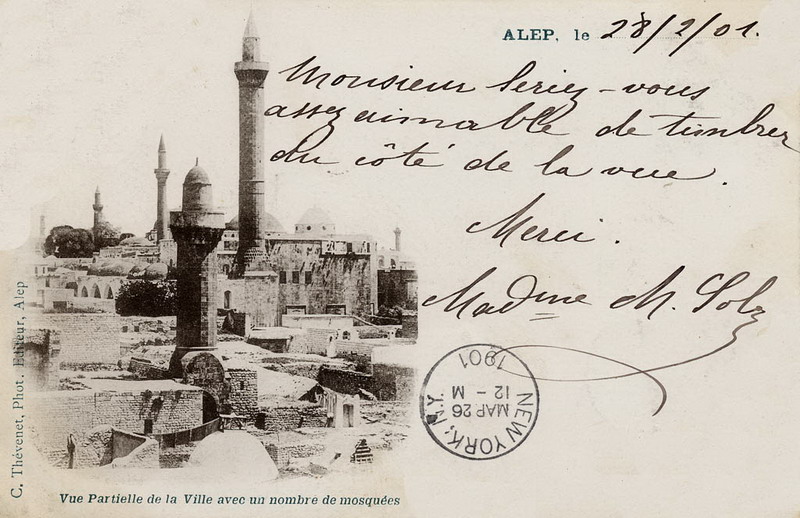 ALEP, le 28/2/01.
Monsieur Seriez-vous
assez aimable de timbrer
du côté de la vue.
Merci.
Madme M. Solz
NEW YORK, N.Y.
MAR 26
12-M
1901
C. Thévenet, Phot. Editeur, Alep
Vue Partielle de la Ville avec un nombre de mosquées